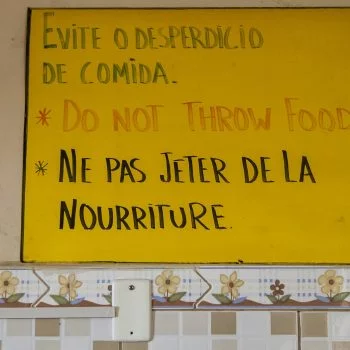 EVITE O DESPERDICIO
DE COMIDA.
* DO NOT THROW FOOD
* NE PAS JETER DE LA
NOURRITURE.